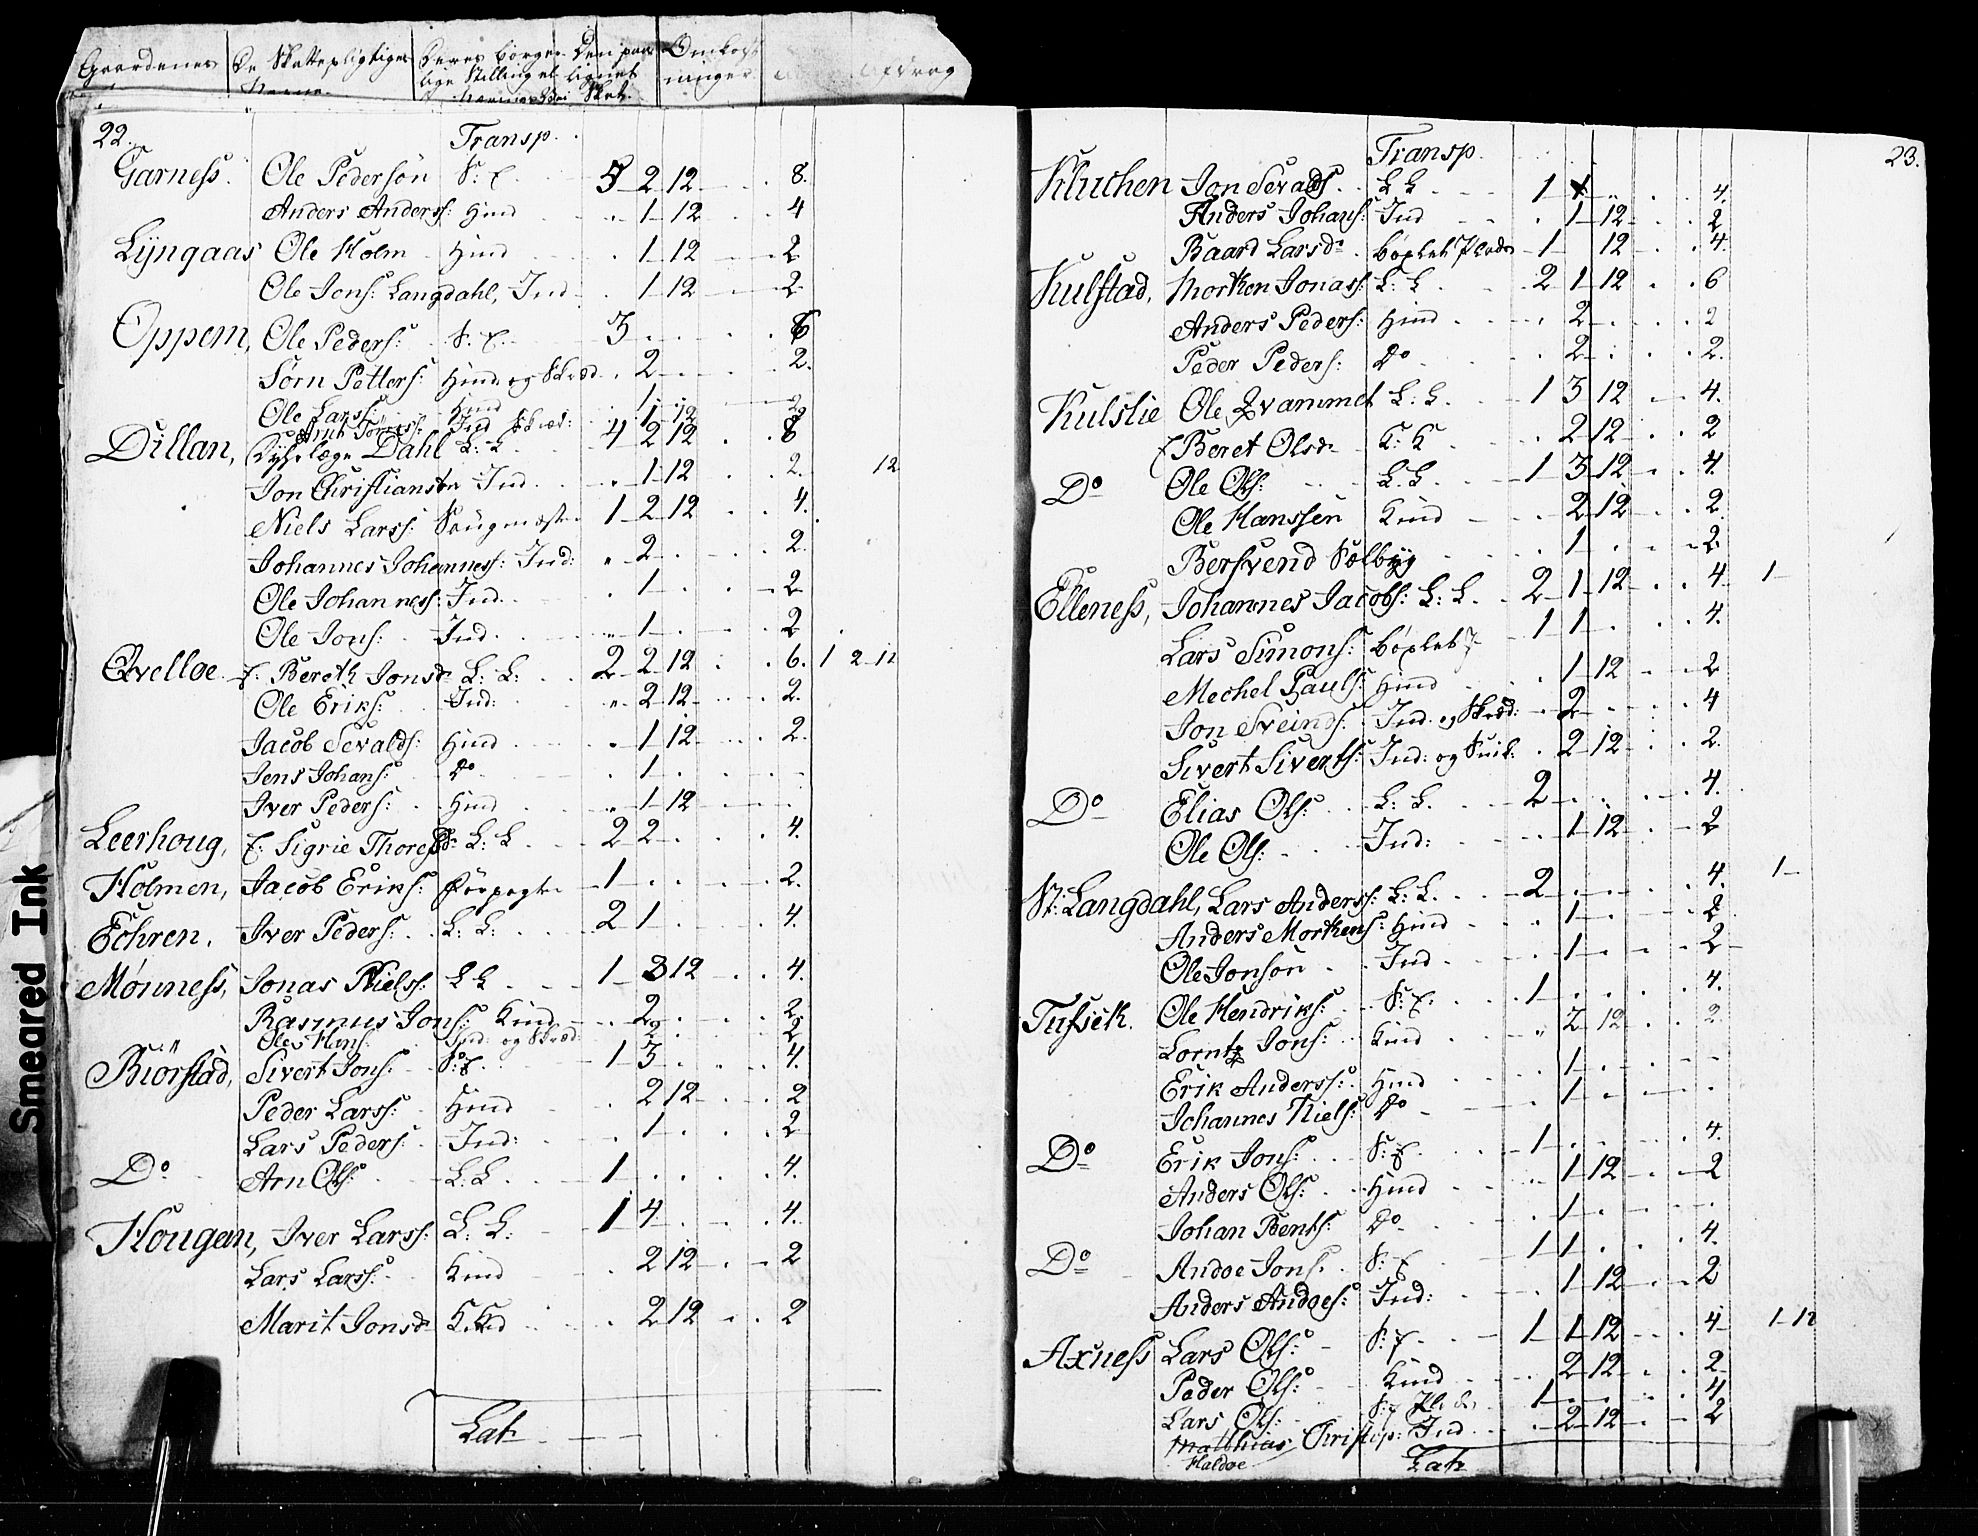 Gaardenes De Skattepligtiges Deres borger- Den paa- Omkost-
Navne lige Stilling el. lignet ninger Afdrag
Skat.
22. Transp.
Garness. Ole Pedersøn S: E 5 2 12 8.
Anders Anderss: Hmd 1 12 4
Lyngaas Ole Holm Hmd 1 12 2
Ole Jons: Langdahl, Ind 1 12 2
Oppem, Ole Peders: S. E. 3 6
Sørn Petters: Hmd og Skræd 2 2.
Ole Larss: Hmd 1 2
Arnt Ind Skræd: 1 12
Dillan, Dahl L: L 4 2 12 8
Jon Christiansen Ind 1 12 2. 12
Niels Larss: Saugmest. 1 2 12 4.
Johannes Johanness: Ind: 2 2.
Ole Johanness: Ind. 1 2
Ole Jons: Ind. 1 2
Qvelloe E: Bereth Jonsd. L: L: 2 2 12 6. 1 2 12
Ole Eriks: Ind: 2 12 2.
Jacob Sevalds: Hmd 1 12 2.
Jens Johans: Do 1
Iver Peders: Hmd 1 12
Leerhoug, E: Sigrie Thoresd. L: L 2 2 4.
Holmen, Jacob Eriks: Forpagt. 1 2.
Echren, Iver Peders: L: L: 2 1 4.
Mønness, Jonas Nielss: L L 1 3 12 4.
Rasmus Jons: Kmd 2 2
Ind: og Skræd: 2 2
Biørstad, Sivert Jons: S: E 1 3 4.
Peder Larss: Hmd 2 12 2
Lars Peders: Ind: 1 2
Do Arn Ols: L: L 1 4.
Hougen, Iver Larss: L: L: 1 4 4.
Lars Larss: Kmd 2 12 2
Marit Jonsd. 2 12 2
Lat.
Transp. 23.
Kluchen Jon Sevalds. L L 1 4.
Anders Johans: Ind 1 12 2
Baard Larsd. bøxlet Plads 1 12 4.
Kulstad, Morten Jonas: L: L 2 1 12 6
Anders Peders: Hmd 2 2
Peder Peders: Do 2 2.
Kulslie Ole Qvammet L: L 1 3 12 4.
E Beret Olsd. K: K 2 12 2
Do Ole Ols: L. L. 1 3 12 4.
Ole Hanssen Kmd 2 12 2.
Bersvend Sælbyg 1 2
Elleness, Johannes Jacobs: L: L. 2 1 12 4 1
Lars Simons: bøxlet P 1 1 4.
Mechel Pauls: Hmd 1 12 2
Jon Sveinds: Ind. og Skræd: 2 4
Sivert Siverts: Ind: og Snik: 2 12 2.
Do Elias Ols: L: L. 2 4.
Ole Ols: Ind: 1 12 2
St: Langdahl, Lars Anderss: L: L. 2 4. 1
Anders Morkens: Hmd 1 2
Ole Jonsøn Ind 1 2
Tufseth. Ole Hendriks: S: E: 1 4.
Lorntz Jons: Kmd 2 12 2.
Erik Anderss: Hmd 1
Johannes Niels: Do 1
Do Erik Jons: S: E. 1 4.
Anders Ols: Hmd 1 12 2
Johan Bents: Do 1
Do Andoe Jons: S: E 1 1 4.
Anders Andoes: Ind: 1 12 2
Axness Lars Ols: S: E. 1 1 12 4 1 12
Peder Ols: Kmd 2 12 2
Lars Ols: 1 4
Matthias Christop: Ind 2 12 2
Haldoe Lat.
Smeared Ink